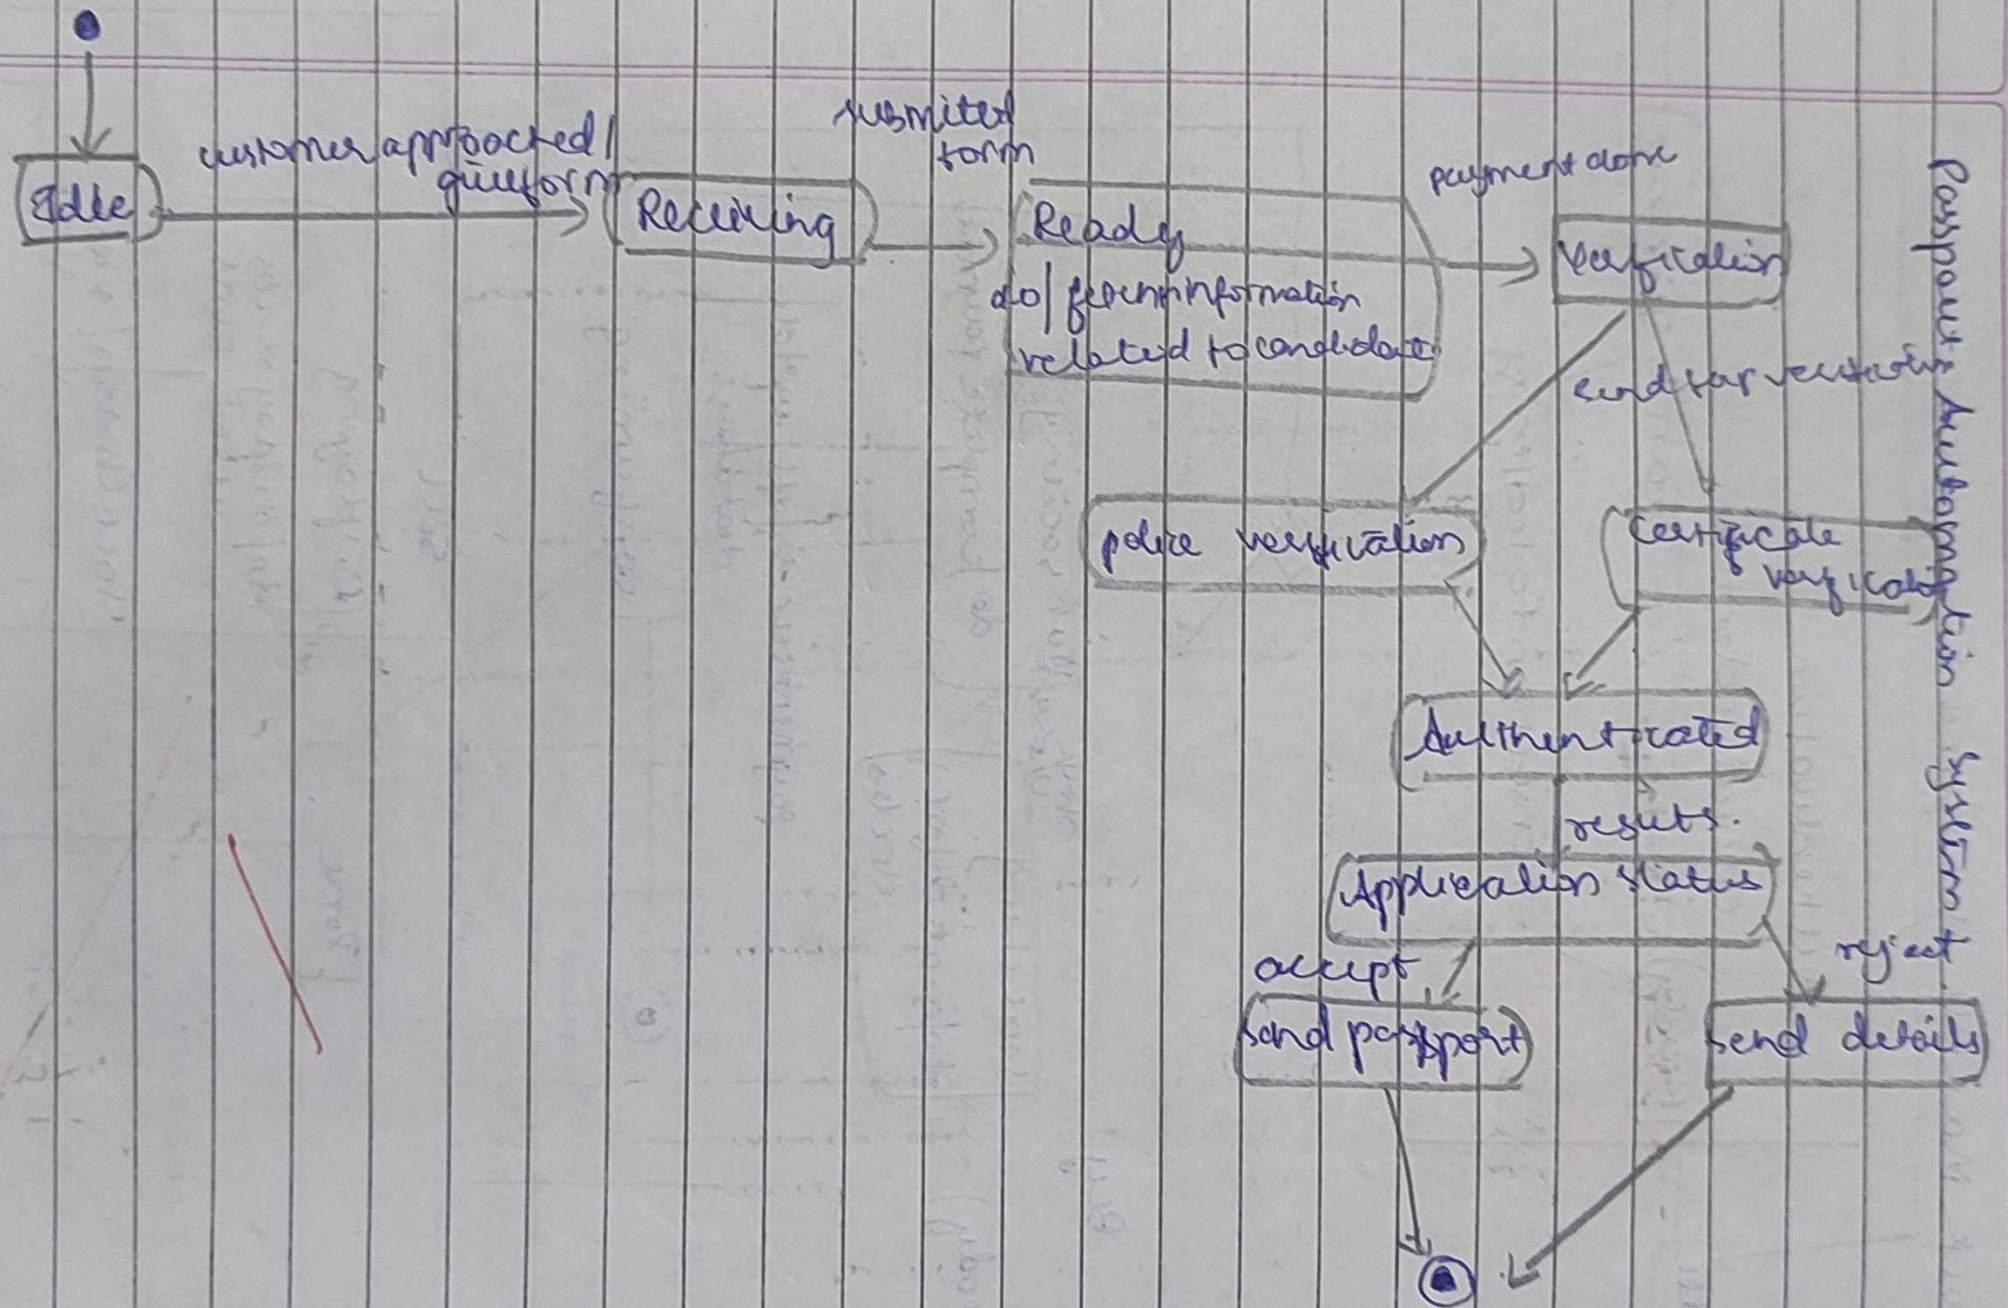 Idle
customer approached/
giveform
Receiving
submited
form
Ready
do/ information
related to candidate
payment done
Verification
send for verification
police verification
Certificate
verification
Authenticated
results.
Application status
accept
reject
send passport
send details
Passport Automation System